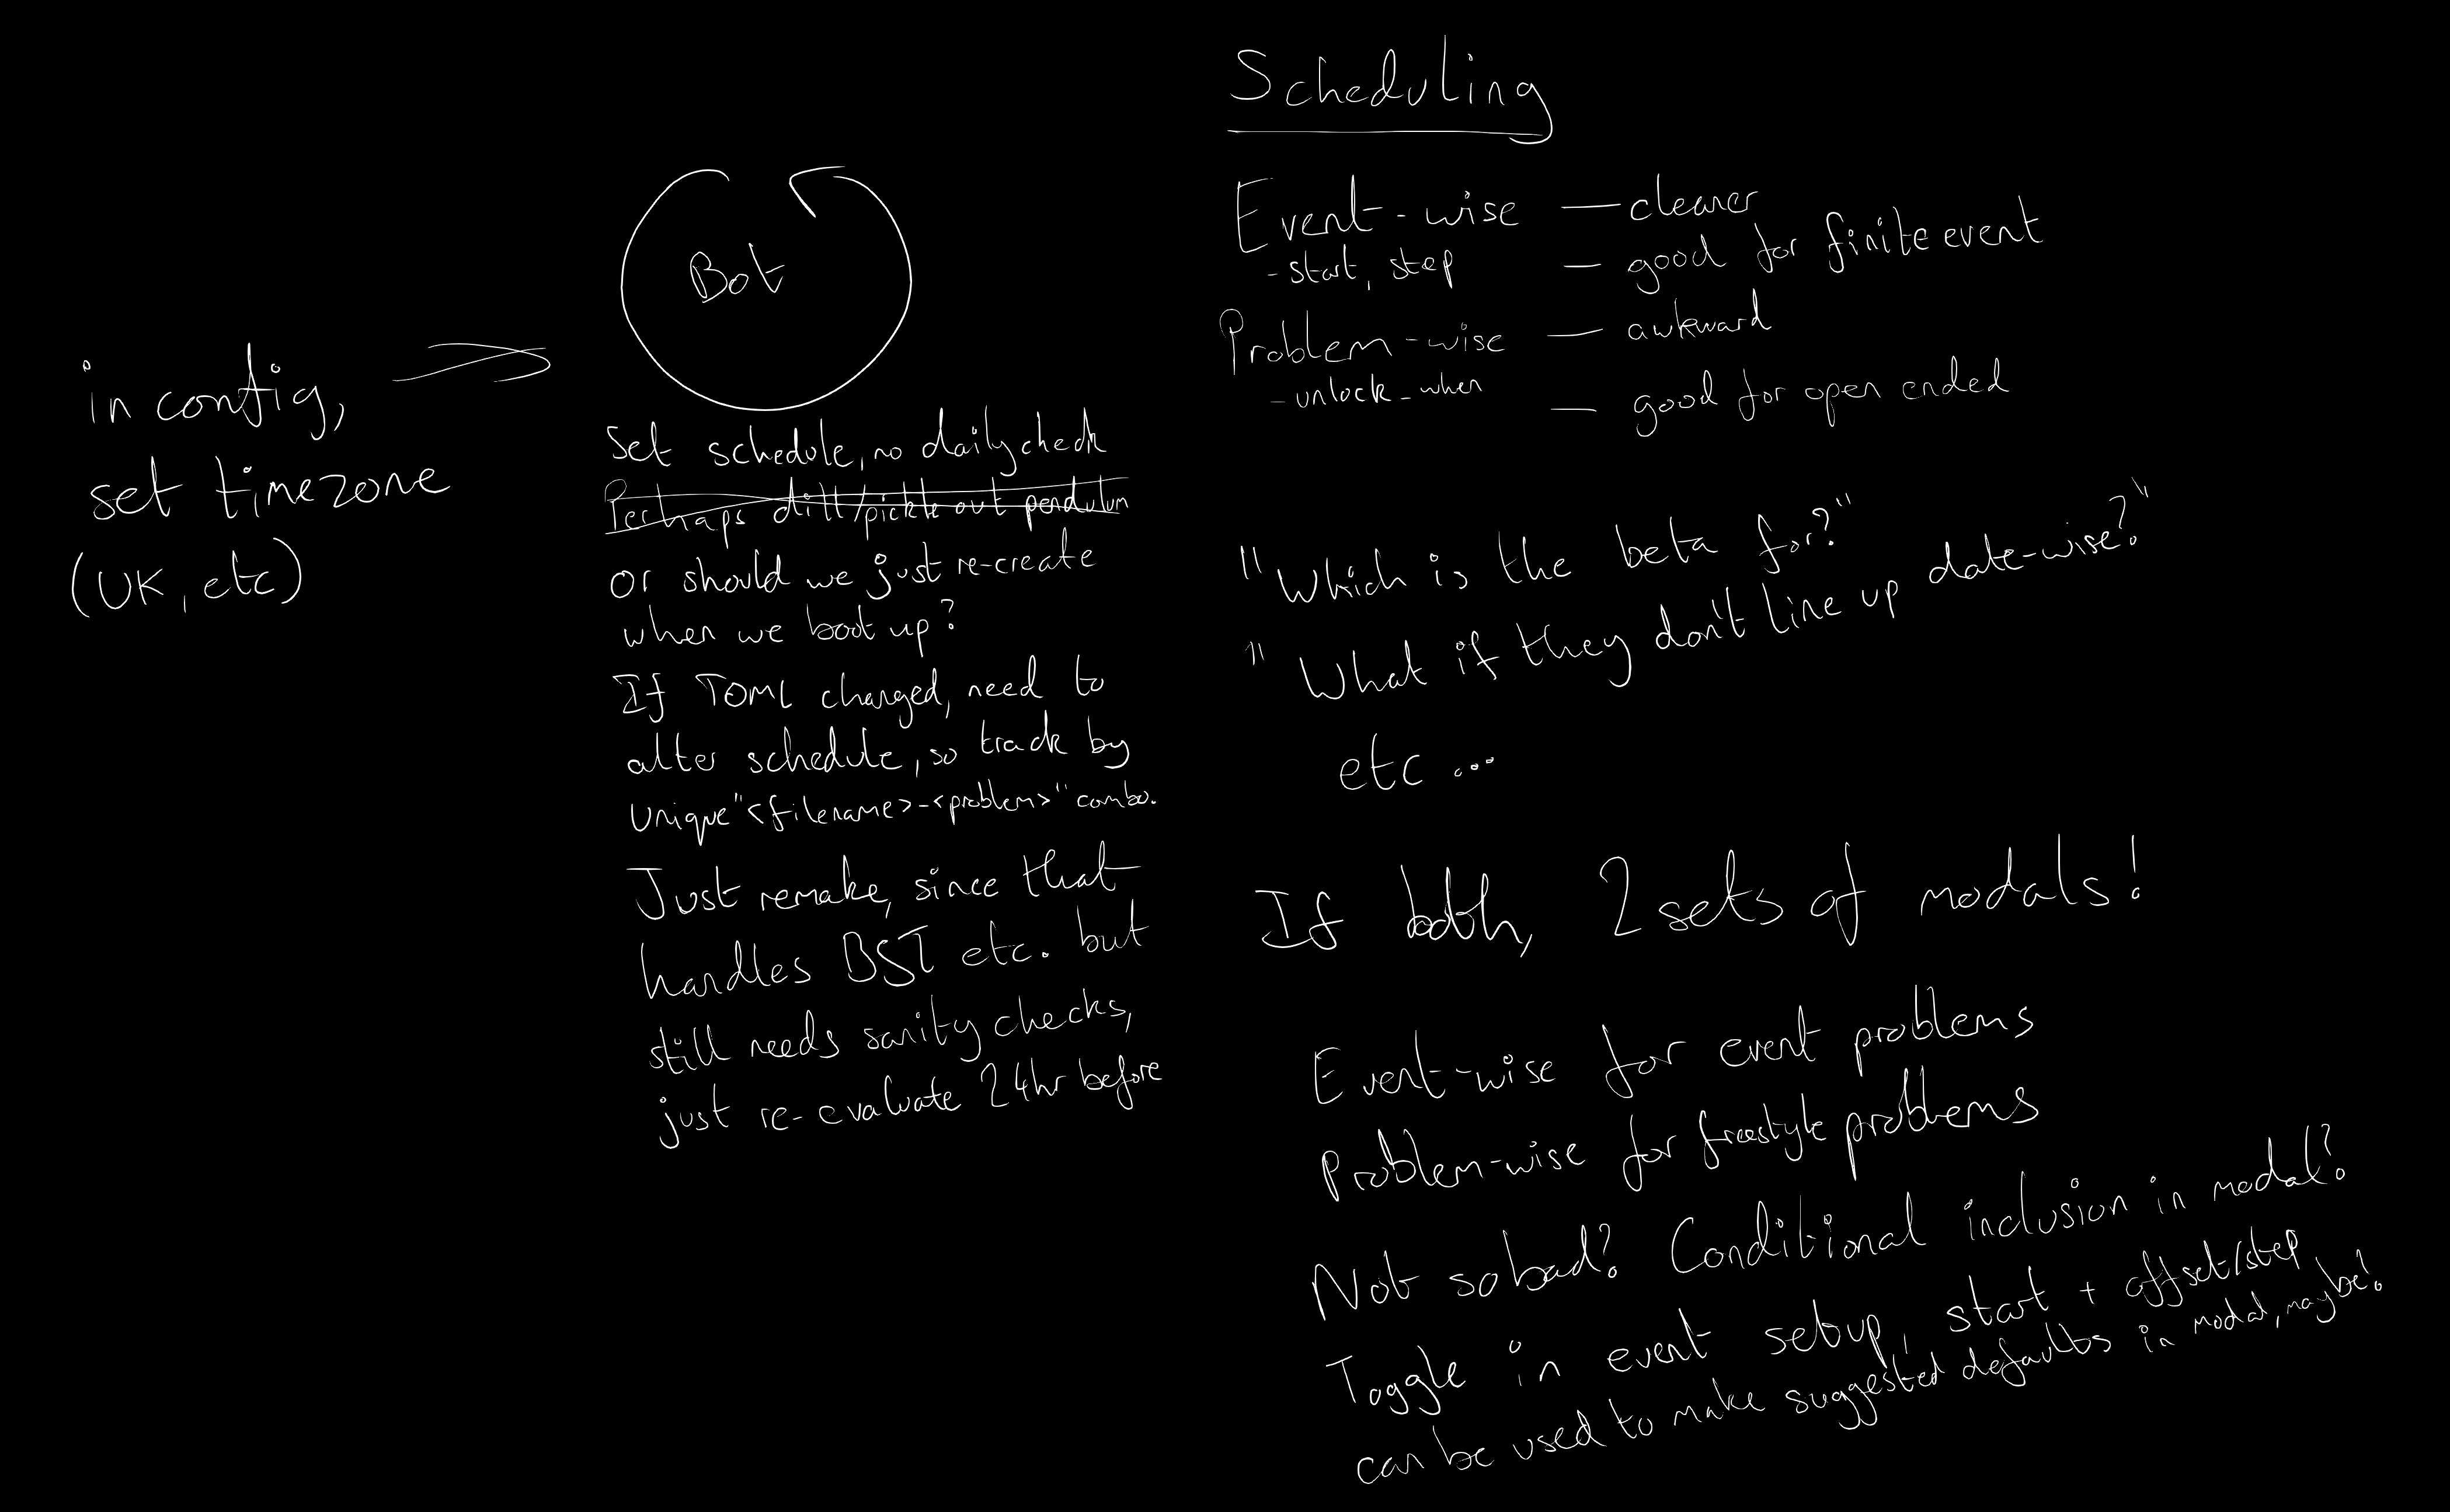 in config,
set timezone
(UK, etc)
Bot
Set schedule, no daily check
Perhaps dill/pickle out pendulum
or should we just re-create
when we boot up?
If TOML changed, need to
alter schedule, so track by
unique "<filename>-<problem>" combo.
Just remake, since that
handles DST etc. but
still needs sanity checks,
just re-evaluate 24hr before
Scheduling
Event-wise — cleaner
- start, step — good for finite event
Problem-wise — awkward
- unlock_when — good for open ended
"Which is the beta for?"
"What if they don't line up date-wise?"
etc...
If both, 2 sets of modals!
Event-wise for event problems
Problem-wise for freestyle problems
Not so bad? Conditional inclusion in modal?
Toggle in event setup, start + offset/step
can be used to make suggested defaults in modal, maybe?